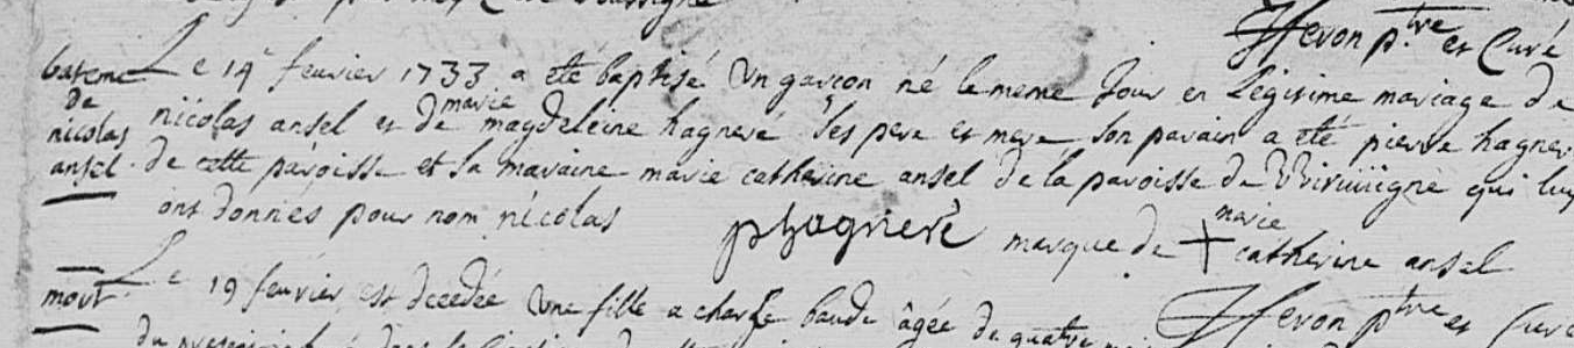 Hevon p.tre et Curé
bateme Le 14 feuvier 1733 a eté baptisé Un garcon né le meme Jour en Légitime mariage de
de nicolas ansel nicolas ansel et de marie magdeleine hagneré Ses pere et mere, Son parain a eté pierre hagner
de cette paroisse et la maraine marie catherine ansel de la paroisse de qui luy
ont donnés pour nom nicolas phagneré marque de + marie catherine ansel
mort Le 19 feuvier est decedée Une fille a charle baude âgée de quatre
Hevon ptre et Curé